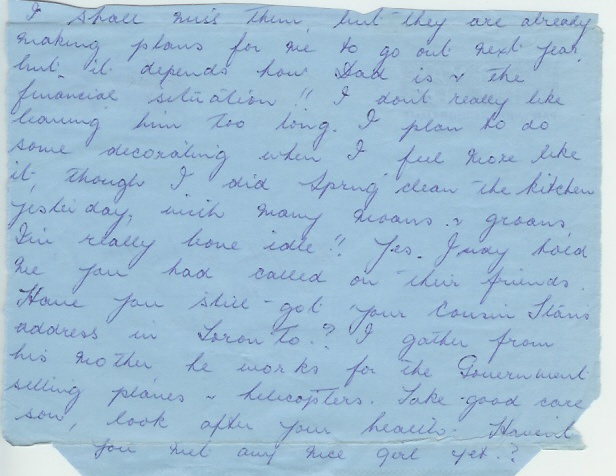 I shall miss them, but they are already
making plans for me to go out next year,
but it depends how Dad is & the
financial situation!! I don't really like
leaving him too long. I plan to do
some decorating when I feel more like
it, though I did Spring clean the kitchen
yesterday, with many moans & groans,
I'm really bone idle!! Yes. Judy told
me you had called on their friends.
Have you still got your Cousin Stans
address in Toronto.? I gather from
his Mother he works for the Government
selling planes & helicopters. Take good care
son, look after your health. Haven't
you met any nice girl yet.?